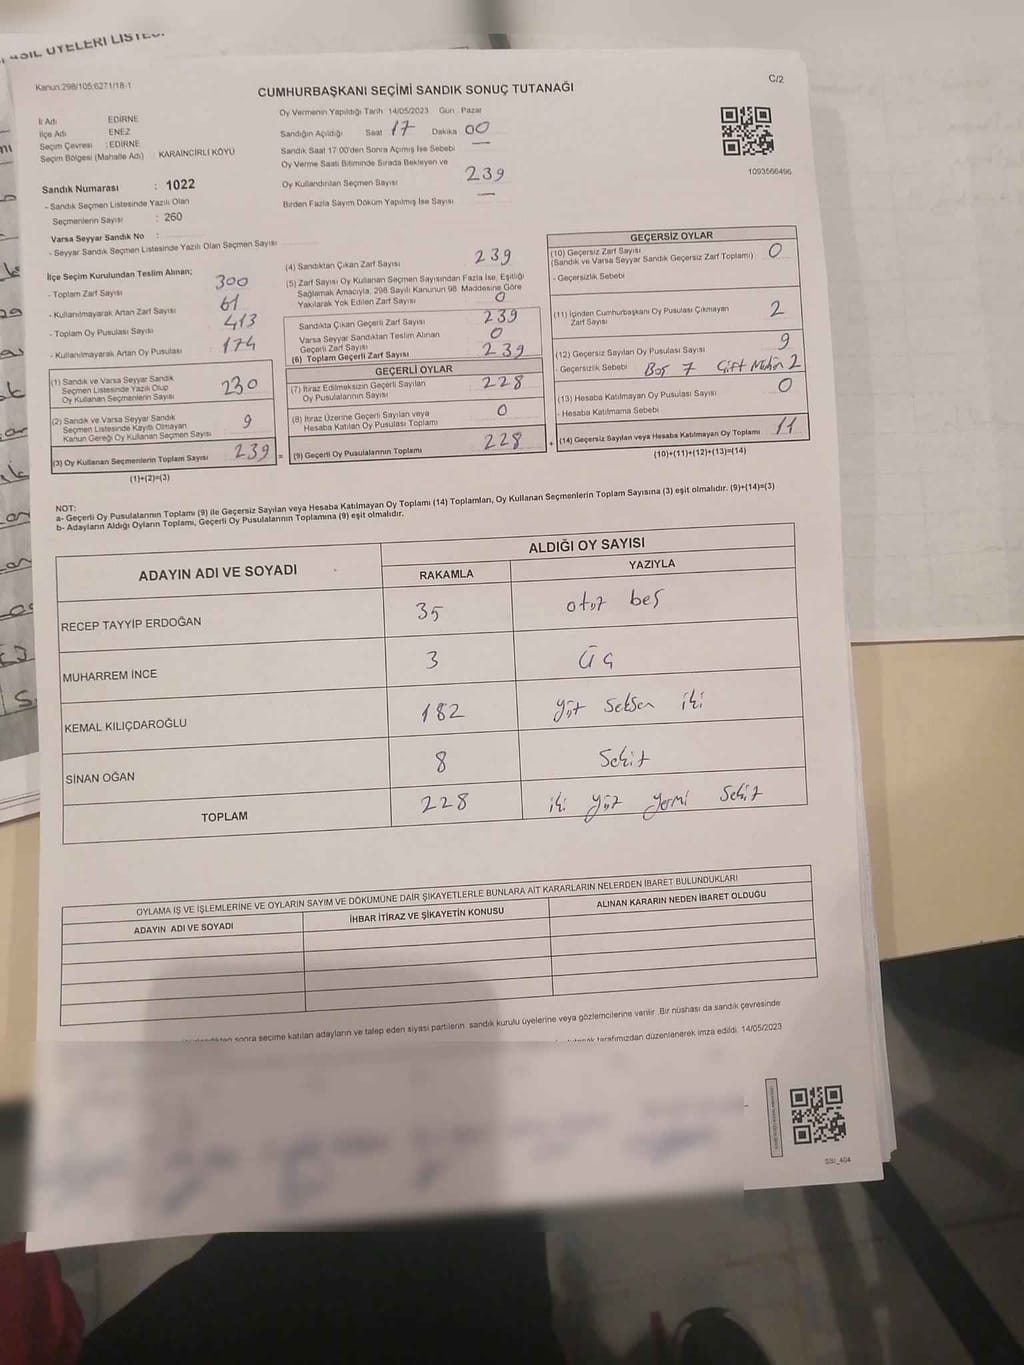 ASIL ÜYELERİ LİSTE
Kanun:298/105;6271/18-1
C/2
CUMHURBAŞKANI SEÇİMİ SANDIK SONUÇ TUTANAĞI
İl Adı EDİRNE
İlçe Adı ENEZ
Seçim Çevresi : EDİRNE
Seçim Bölgesi (Mahalle Adı) : KARAİNCİRLİ KÖYÜ
Sandık Numarası : 1022
- Sandık Seçmen Listesinde Yazılı Olan
Seçmenlerin Sayısı : 260
Varsa Seyyar Sandık No :
- Seyyar Sandık Seçmen Listesinde Yazılı Olan Seçmen Sayısı
Oy Vermenin Yapıldığı Tarih 14/05/2023 Gün : Pazar
Sandığın Açıldığı Saat 17 Dakika 00
Sandık Saat 17:00'den Sonra Açımış İse Sebebi —
Oy Verme Saati Bitiminde Sırada Bekleyen ve
Oy Kullandırılan Seçmen Sayısı 239
Birden Fazla Sayım Döküm Yapılmış İse Sayısı —
1093566496
İlçe Seçim Kurulundan Teslim Alınan;
- Toplam Zarf Sayısı 300
- Kullanılmayarak Artan Zarf Sayısı 61
- Toplam Oy Pusulası Sayısı 413
- Kullanılmayarak Artan Oy Pusulası 174
(1) Sandık ve Varsa Seyyar Sandık
Seçmen Listesinde Yazılı Olup
Oy Kullanan Seçmenlerin Sayısı 230
(2) Sandık ve Varsa Seyyar Sandık
Seçmen Listesinde Kayıtlı Olmayan
Kanun Gereği Oy Kullanan Seçmen Sayısı 9
(3) Oy Kullanan Seçmenlerin Toplam Sayısı 239 =
(1)+(2)=(3)
(4) Sandıktan Çıkan Zarf Sayısı 239
(5) Zarf Sayısı Oy Kullanan Seçmen Sayısından Fazla İse, Eşitliği
Sağlamak Amacıyla, 298 Sayılı Kanunun 98. Maddesine Göre
Yakılarak Yok Edilen Zarf Sayısı 0
Sandıkta Çıkan Geçerli Zarf Sayısı 239
Varsa Seyyar Sandıktan Teslim Alınan
Geçerli Zarf Sayısı 0
(6) Toplam Geçerli Zarf Sayısı 239
GEÇERLİ OYLAR
(7) İtiraz Edilmeksizin Geçerli Sayılan
Oy Pusulalarının Sayısı 228
(8) İtiraz Üzerine Geçerli Sayılan veya
Hesaba Katılan Oy Pusulası Toplamı 0
(9) Geçerli Oy Pusulalarının Toplamı 228 +
GEÇERSİZ OYLAR
(10) Geçersiz Zarf Sayısı 0
(Sandık ve Varsa Seyyar Sandık Geçersiz Zarf Toplamı)
- Geçersizlik Sebebi
(11) İçinden Cumhurbaşkanı Oy Pusulası Çıkmayan
Zarf Sayısı 2
(12) Geçersiz Sayılan Oy Pusulası Sayısı 9
- Geçersizlik Sebebi Boş 7 Çift Mühür 2
(13) Hesaba Katılmayan Oy Pusulası Sayısı 0
- Hesaba Katılmama Sebebi
(14) Geçersiz Sayılan veya Hesaba Katılmayan Oy Toplamı 11
(10)+(11)+(12)+(13)=(14)
NOT:
a- Geçerli Oy Pusulalarının Toplamı (9) ile Geçersiz Sayılan veya Hesaba Katılmayan Oy Toplamı (14) Toplamları, Oy Kullanan Seçmenlerin Toplam Sayısına (3) eşit olmalıdır. (9)+(14)=(3)
b- Adayların Aldığı Oyların Toplamı, Geçerli Oy Pusulalarının Toplamına (9) eşit olmalıdır.
ADAYIN ADI VE SOYADI
ALDIĞI OY SAYISI
RAKAMLA YAZIYLA
RECEP TAYYİP ERDOĞAN 35 otuz beş
MUHARREM İNCE 3 üç
KEMAL KILIÇDAROĞLU 182 yüz seksen iki
SİNAN OĞAN 8 Sekiz
TOPLAM 228 iki yüz yirmi Sekiz
OYLAMA İŞ VE İŞLEMLERİNE VE OYLARIN SAYIM VE DÖKÜMÜNE DAİR ŞİKAYETLERLE BUNLARA AİT KARARLARIN NELERDEN İBARET BULUNDUKLARI
ADAYIN ADI VE SOYADI İHBAR İTİRAZ VE ŞİKAYETİN KONUSU ALINAN KARARIN NEDEN İBARET OLDUĞU
sonra seçime katılan adayların ve talep eden siyasi partilerin sandık kurulu üyelerine veya gözlemcilerine verilir. Bir nüshası da sandık çevresinde
tarafımızdan düzenlenerek imza edildi. 14/05/2023
SSI_404